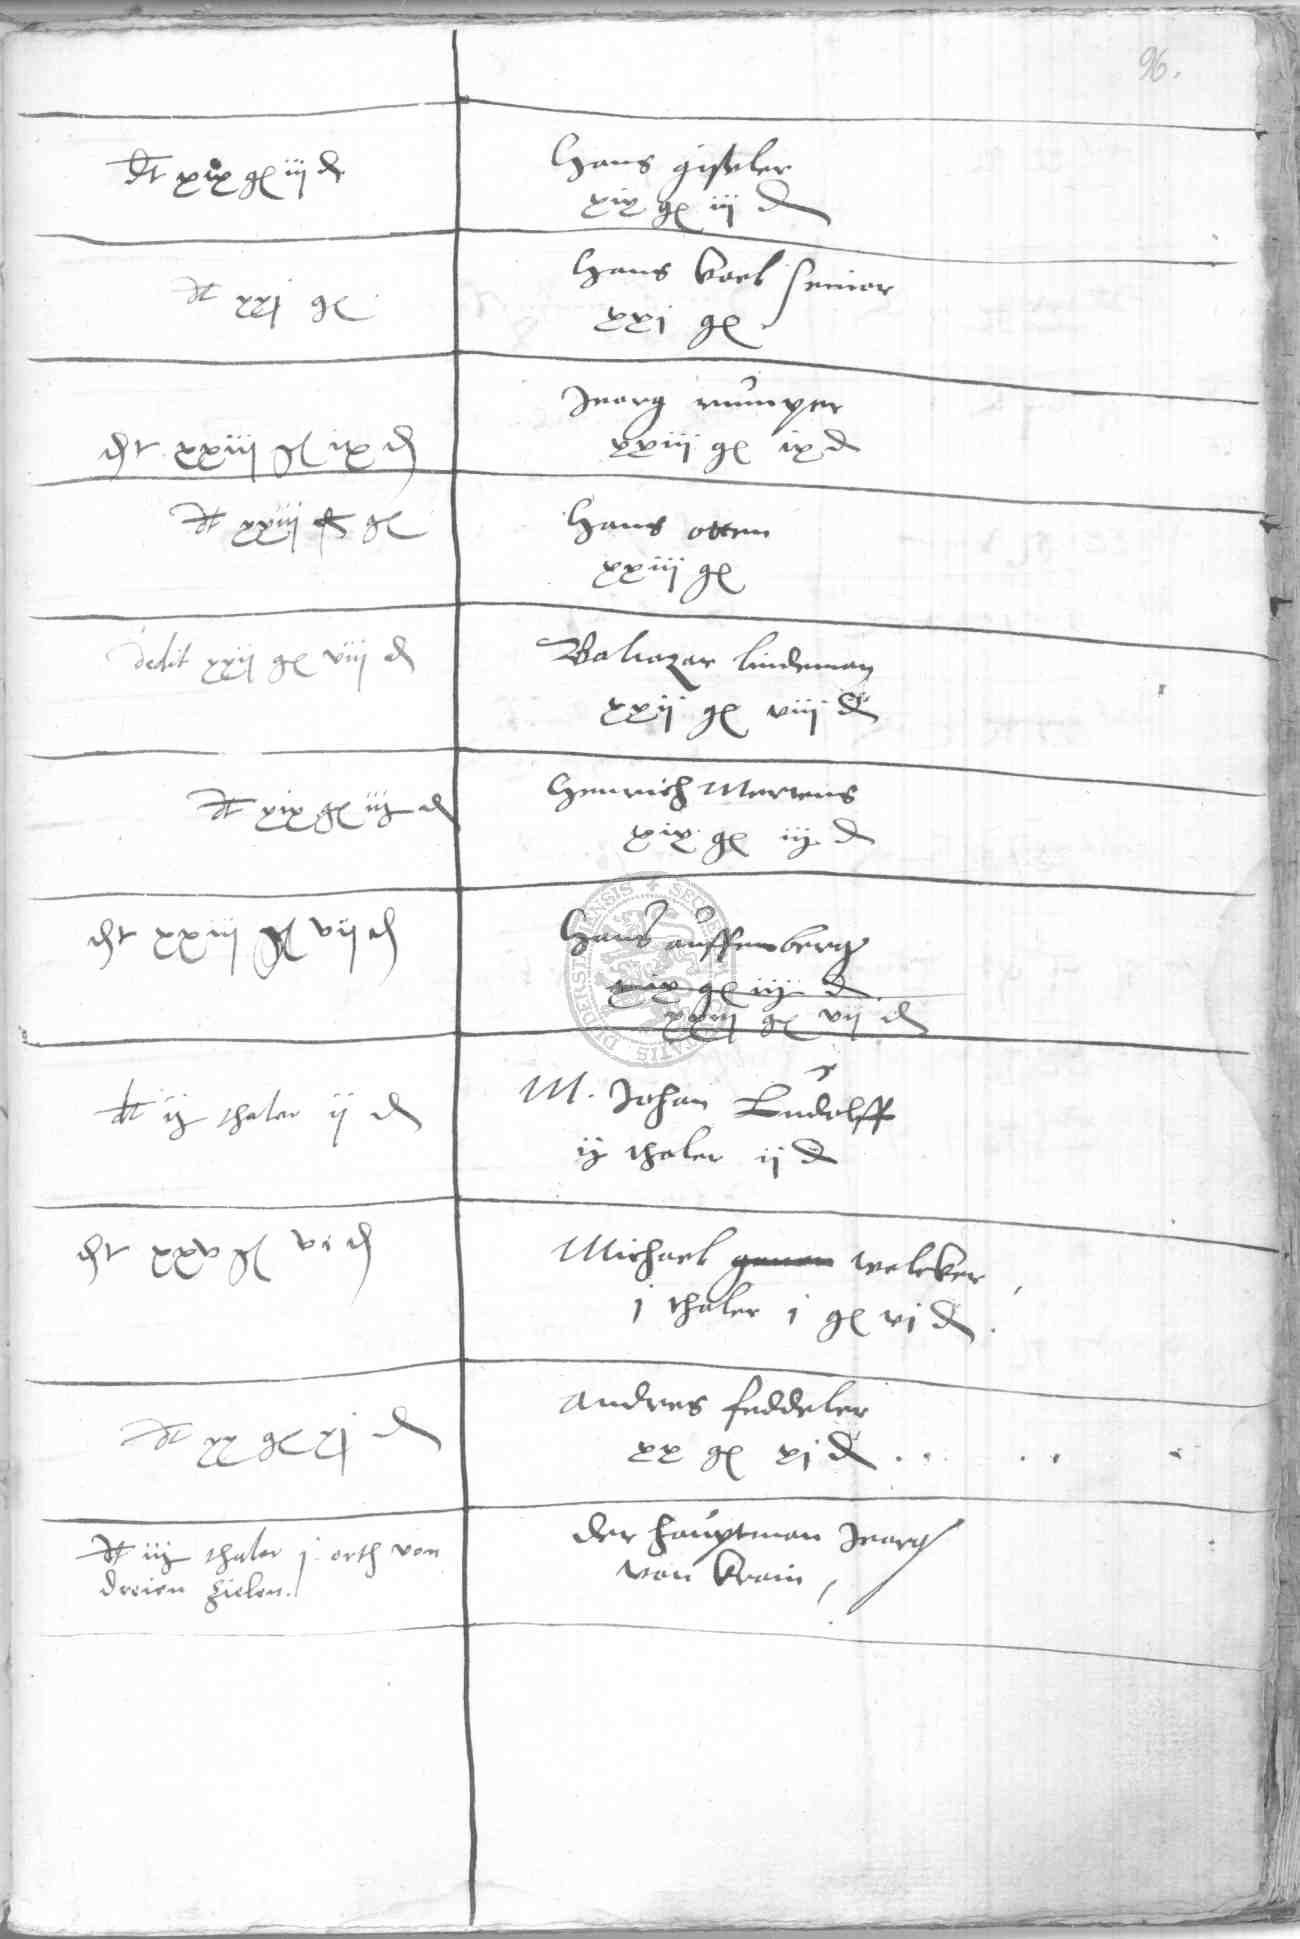 96.
dt xix gl iij d
Hans gißeler
xix gl iij d
dt xxj gl
Hans koel senior
xxj gl
dt xxiij gl ix d
Jeorg rumper
xxiij gl ix d
dt xxiij gl
Hans otten
xxiij gl
dedit xxij gl viij d
Baltazar lindeman
xxij gl viij d
dt xix gl iij d
Henrich Mertens
xix gl iij d
dt xxiij gl vij d
Hans auffenberg
xix gl iij d
xxiij gl vij d
dt ij thaler ij d
M. Johan Ludolff
ij thaler ij d
dt xxv gl vi d
Michael welcker
j thaler j gl vj d
dt xx gl xj d
Andres feddeler
xx gl xj d
dt iij thaler j orth von
dreien zielen
der Hauptman Jeorg
von krain